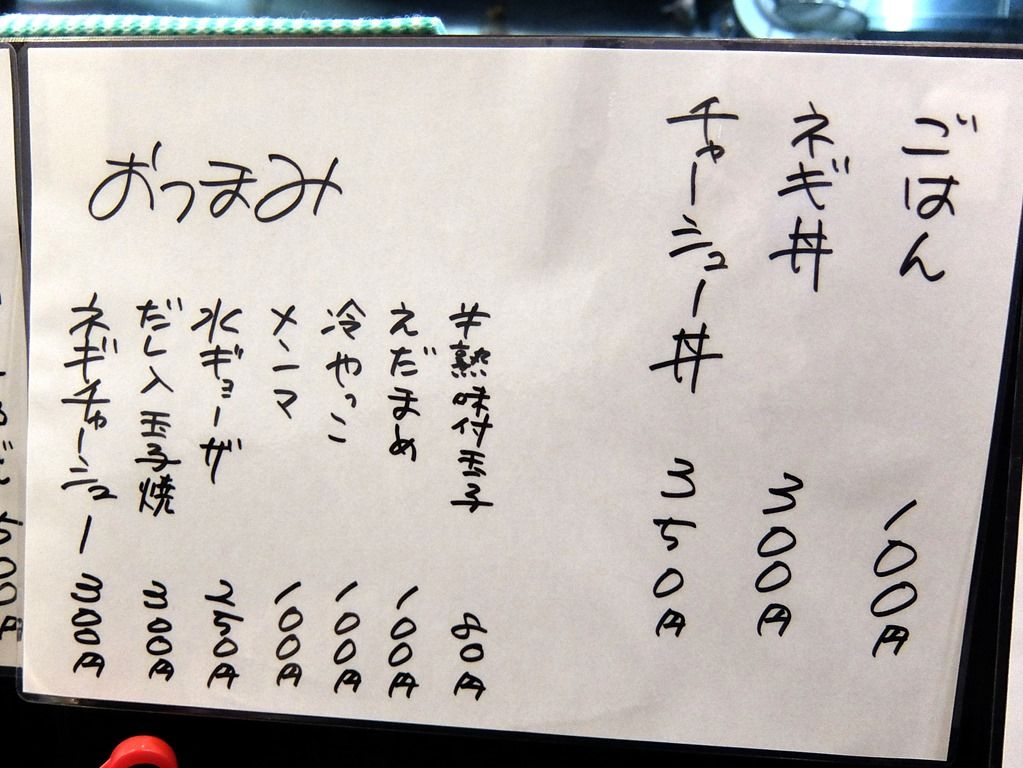 ごはん 100円
ネギ丼 300円
チャーシュー丼 350円
おつまみ
半熟味付玉子 80円
えだまめ 100円
冷やっこ 100円
メンマ 100円
水ギョーザ 250円
だし入玉子焼 300円
ネギチャーシュー 300円
500円